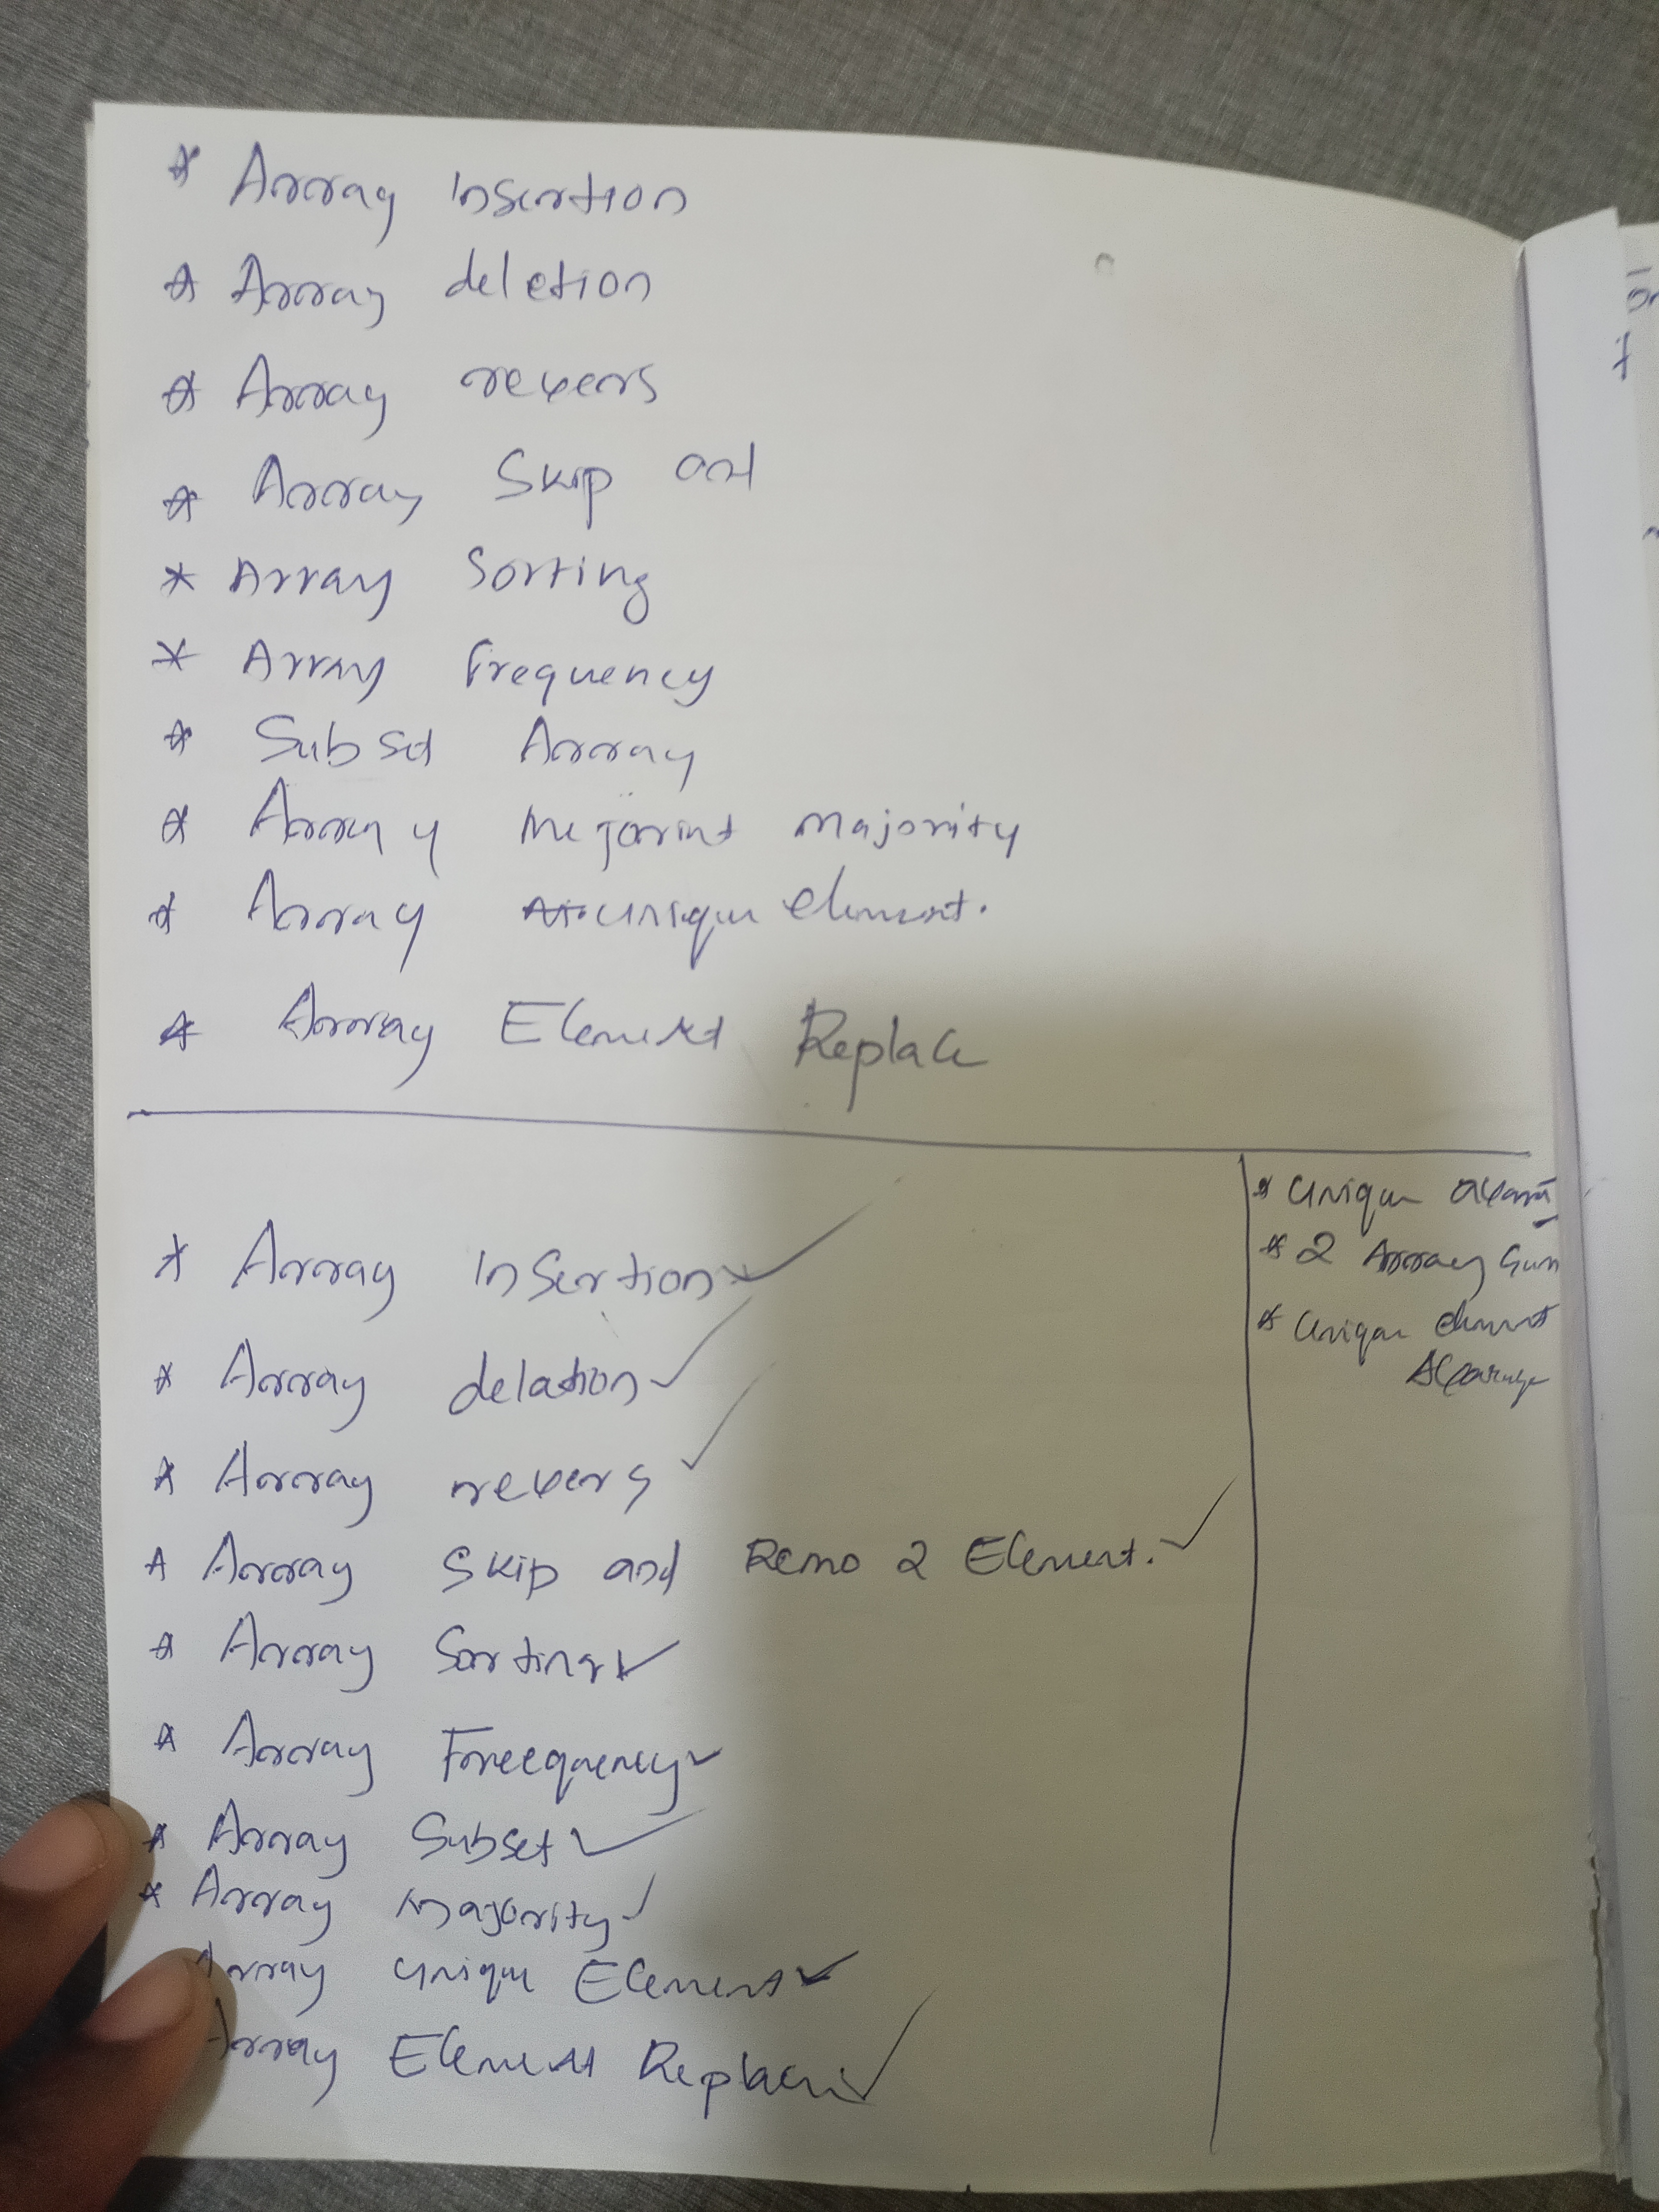 * Array Insertion
* Array deletion
* Array revers
* Array Skip and
* Array Sorting
* Array frequency
* Subset Array
* Array majority
* Array unique element.
* Array Element Replace
* Array Insertion ✓
* Array delation ✓
* Array revers ✓
* Array Skip and Remo 2 Element. ✓
* Array Sorting ✓
* Array Freequency ✓
* Array Subset ✓
* Array majority ✓
Array unique Element ✓
Array Element Replace ✓
* unique
* 2 Array Sum
* unique element